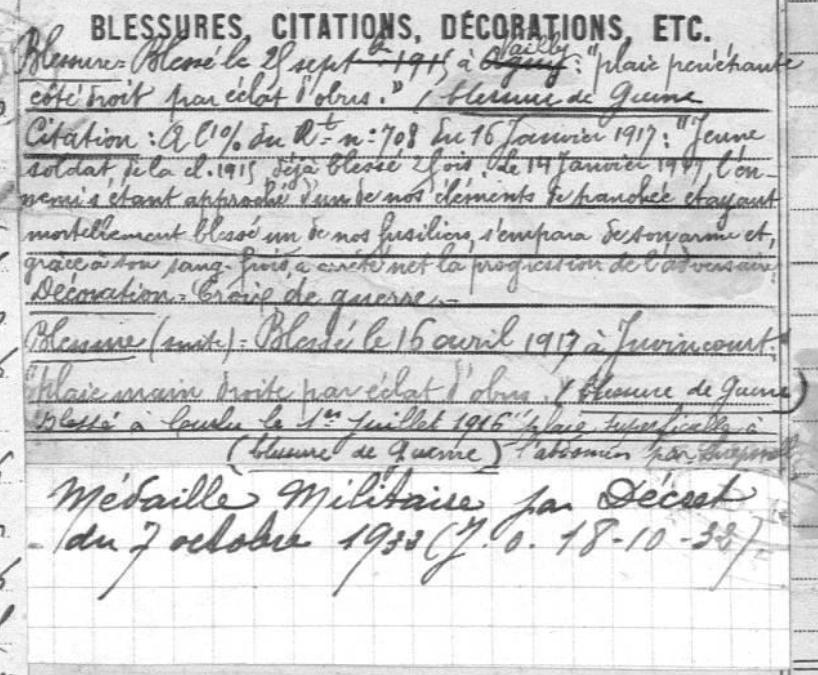 BLESSURES, CITATIONS, DÉCORATIONS, ETC.
Blessure = Blessé le 25 sept bre 1915 à Agny Vailly : "plaie pénétrante
côté droit par éclat d'obus." (blessure de Guerre
Citation : à l'o/ du Rt n° 708 du 16 Janvier 1917 : "Jeune
soldat de la cl. 1915 déjà blessé 2 fois. Le 14 Janvier 1917, l'en-
nemi s'étant approché d'un de nos éléments de tranchée et ayant
mortellement blessé un de nos fusiliers, s'empara de son arme et,
grâce à son sang-froid, a arrêté net la progression de l'adversaire.
Décoration = Croix de guerre.-
Blessure (suite) = Blessé le 16 avril 1917 à Juvincourt.
"plaie main droite par éclat d'obus. (blessure de Guerre)
Blessé à le 1er Juillet 1916 "plaie superficielle à
(blessure de Guerre) l'abdomen par
Médaille Militaire par Décret
du 7 octobre 1933 (J. O. 18-10-33)